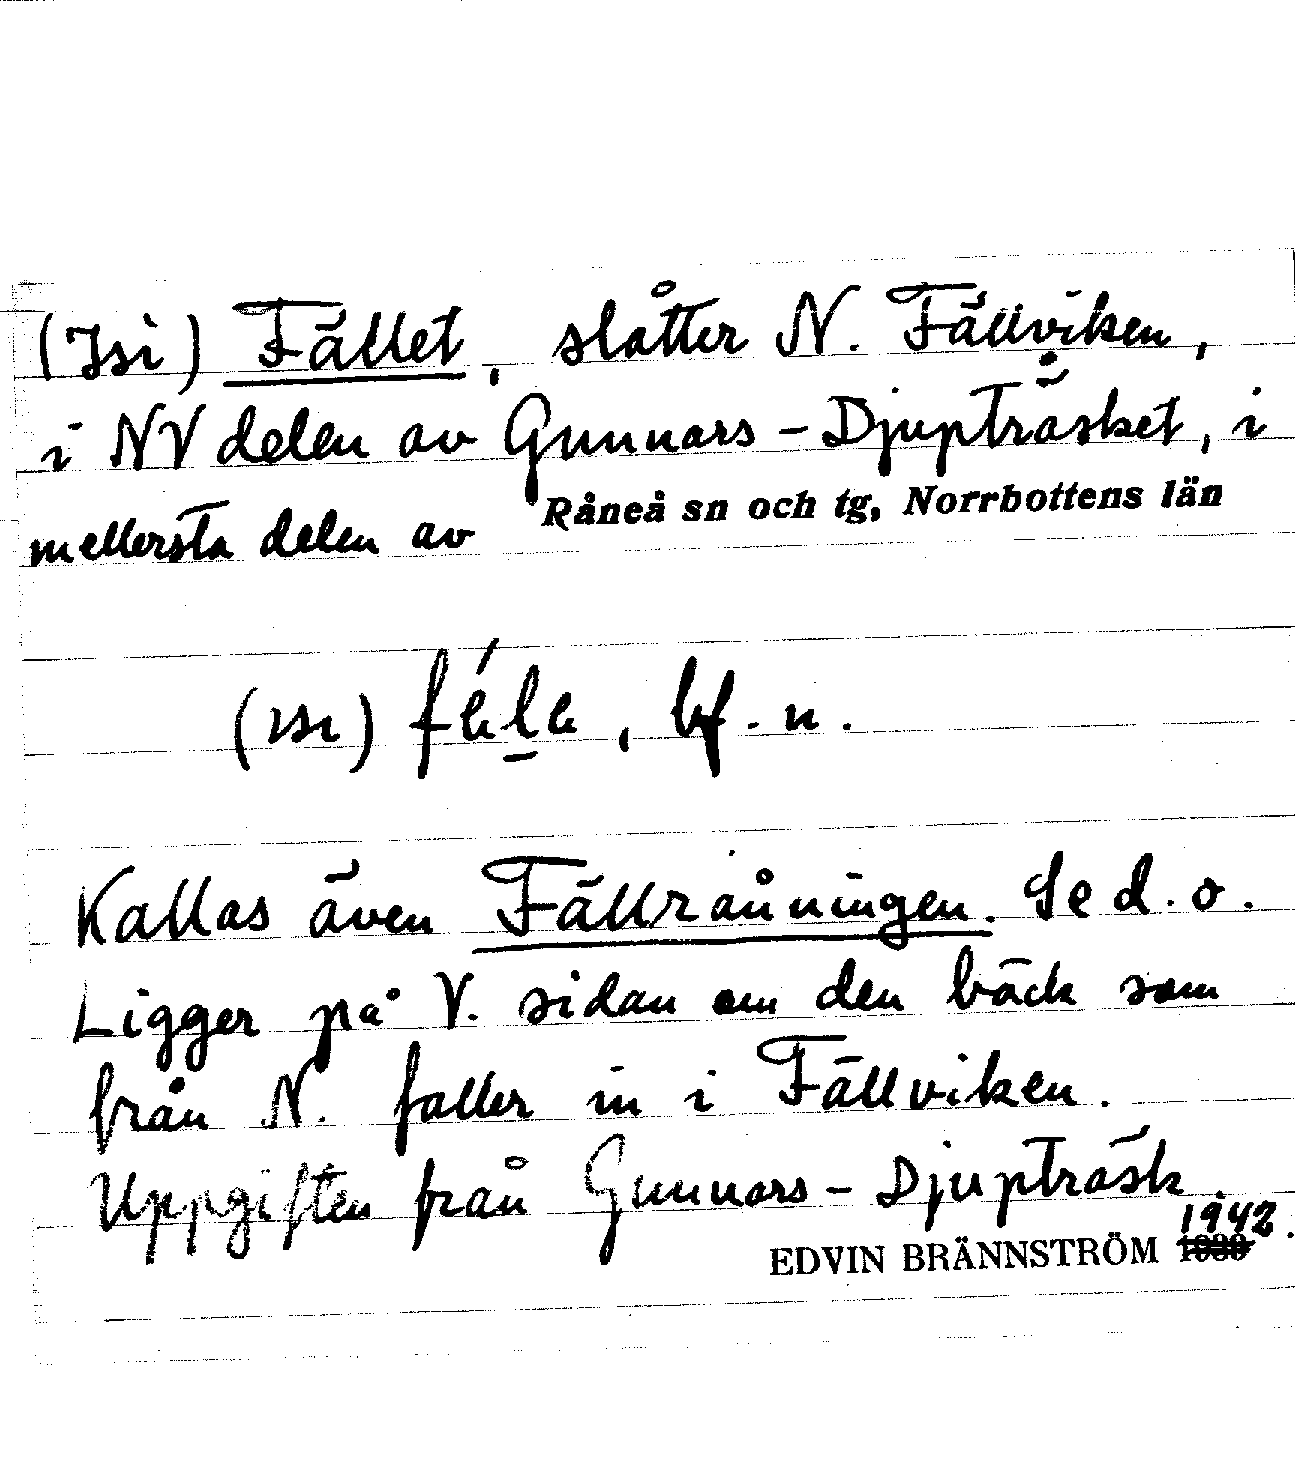 (Isi) Fället, slåtter N. Fällviken,
i NV delen av Gunnars-Djupträsket, i
mellersta delen av Råneå sn och tg, Norrbottens län
(ısı) , bf. n.
Kallas även Fällråningen. Se d. o.
Ligger på V. sidan om den bäck som
från N. faller in i Fällviken.
Uppgiften från Gunnars-Djupträsk.
1942
EDVIN BRÄNNSTRÖM